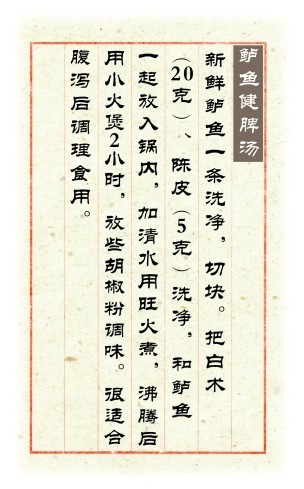 鲈鱼健脾汤
新鲜鲈鱼一条洗净，切块。把白术
（20克）、陈皮（5克）洗净，和鲈鱼
一起放入锅内，加清水用旺火煮，沸腾后
用小火煲2小时，放些胡椒粉调味。很适合
腹泻后调理食用。